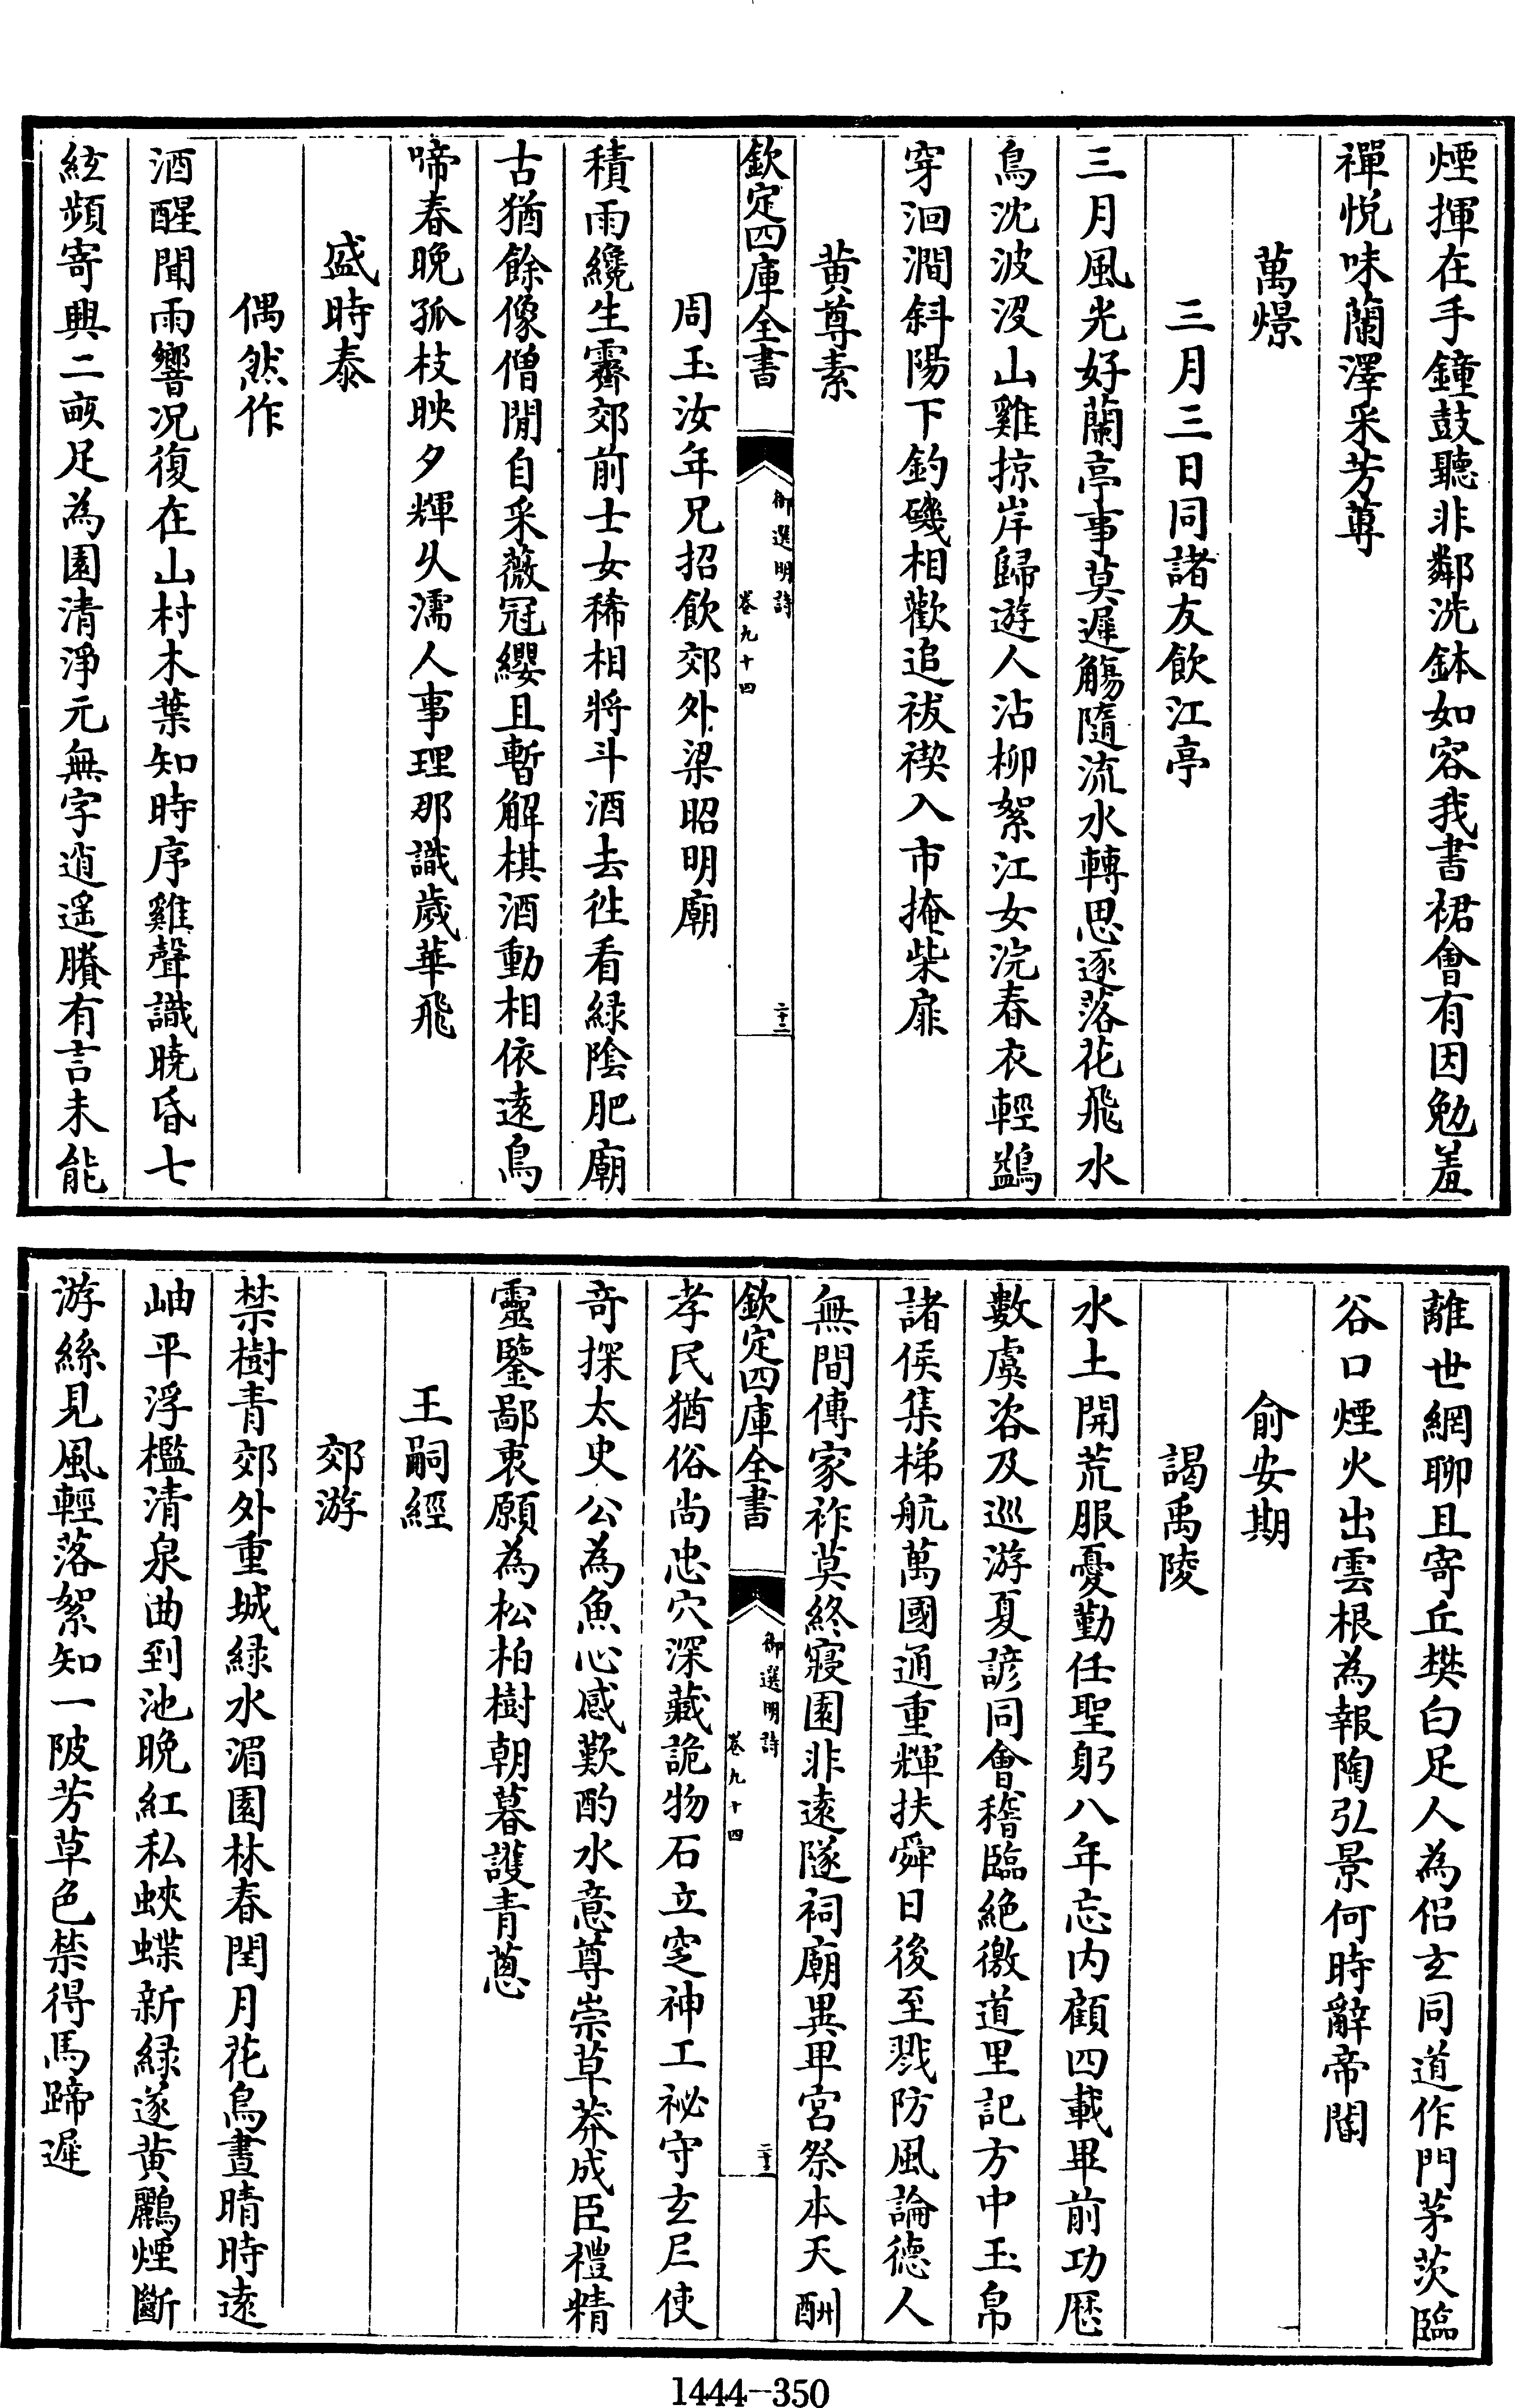 煙揮在手鐘鼓聽非鄰洗鉢如容我書裙會有因勉羞
禪悅味蘭澤采芳蓴
萬㬌
三月三日同諸友飲江亭
三月風光好蘭亭事莫遲觴隨流水轉思逐落花飛水
鳥沈波沒山雞掠岸歸遊人沾柳絮江女浣春衣輕鷁
穿洄澗斜陽下釣磯相歡追祓禊入市掩柴扉
黃尊素
欽定四庫全書
御選明詩
卷九十四
二十二
周玉汝年兄招飲郊外梁昭明廟
積雨纔生霽郊前士女稀相將斗酒去徃看綠陰肥廟
古猶餘像僧閒自采薇冠纓且暫解棋酒動相依遠鳥
啼春晚孤枝映夕輝乆濡人事理那識歲華飛
盛時泰
偶然作
酒醒聞雨響况復在山村木葉知時序雞聲識曉昏七
絃頻寄興二畝足為園清淨元無字逍遙賸有言未能
離世網聊且寄丘樊白足人為侣玄同道作門茅茨臨
谷口煙火出雲根為報陶弘景何時辭帝閽
俞安期
謁禹陵
水土開荒服憂勤任聖躬八年忘内顧四載畢前功厯
數虞咨及巡游夏諺同會稽臨絶徼道里記方中玉帛
諸侯集梯航萬國通重輝扶舜日後至戮防風論德人
無間傳家祚莫終寢園非遠隧祠廟異卑宮祭本天酬
欽定四庫全書
御選明詩
卷九十四
二十三
孝民猶俗尚忠穴深藏詭物石立空神工祕守玄𡰥使
奇探太史公為魚心感歎酌水意尊崇草莽成臣禮精
靈鑒鄙衷願為松柏樹朝暮護青蔥
王嗣經
郊游
禁樹青郊外重城綠水湄園林春閏月花鳥晝晴時遠
岫平浮檻清泉曲到池晚紅私蛺蝶新綠遂黃鸝煙斷
游絲見風輕落絮知一陂芳草色禁得馬蹄遲
1444-350